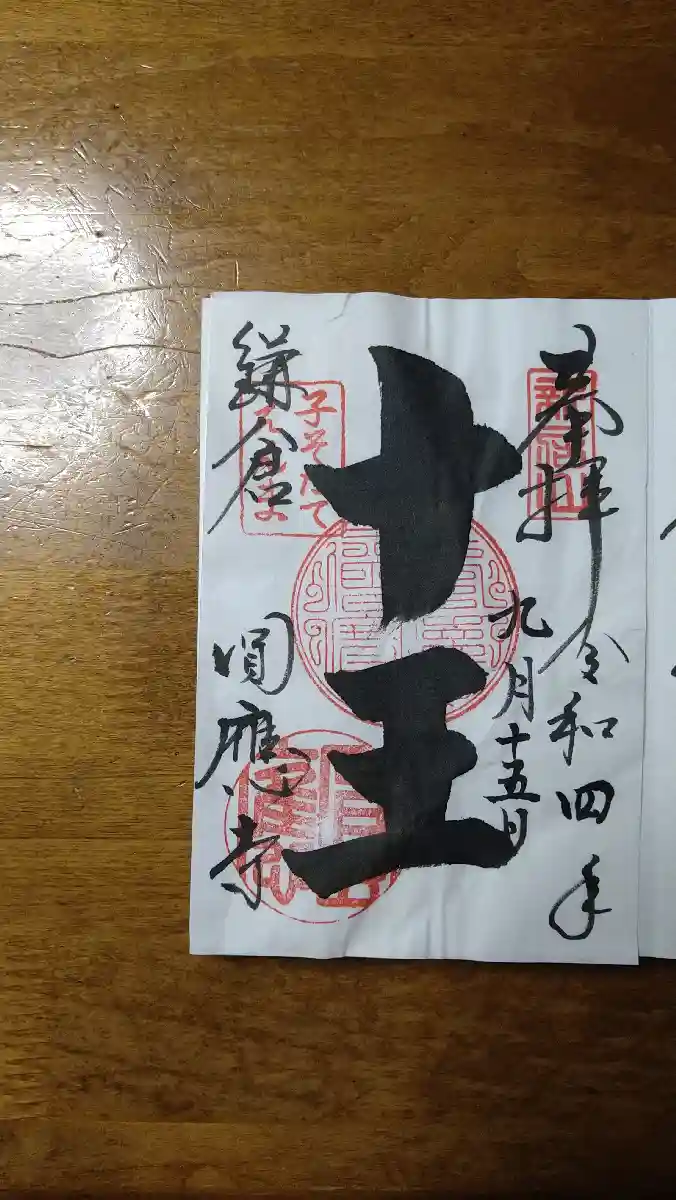 奉拝 令和四年
九月十五日
十王
鎌倉 圓應寺
子そだて